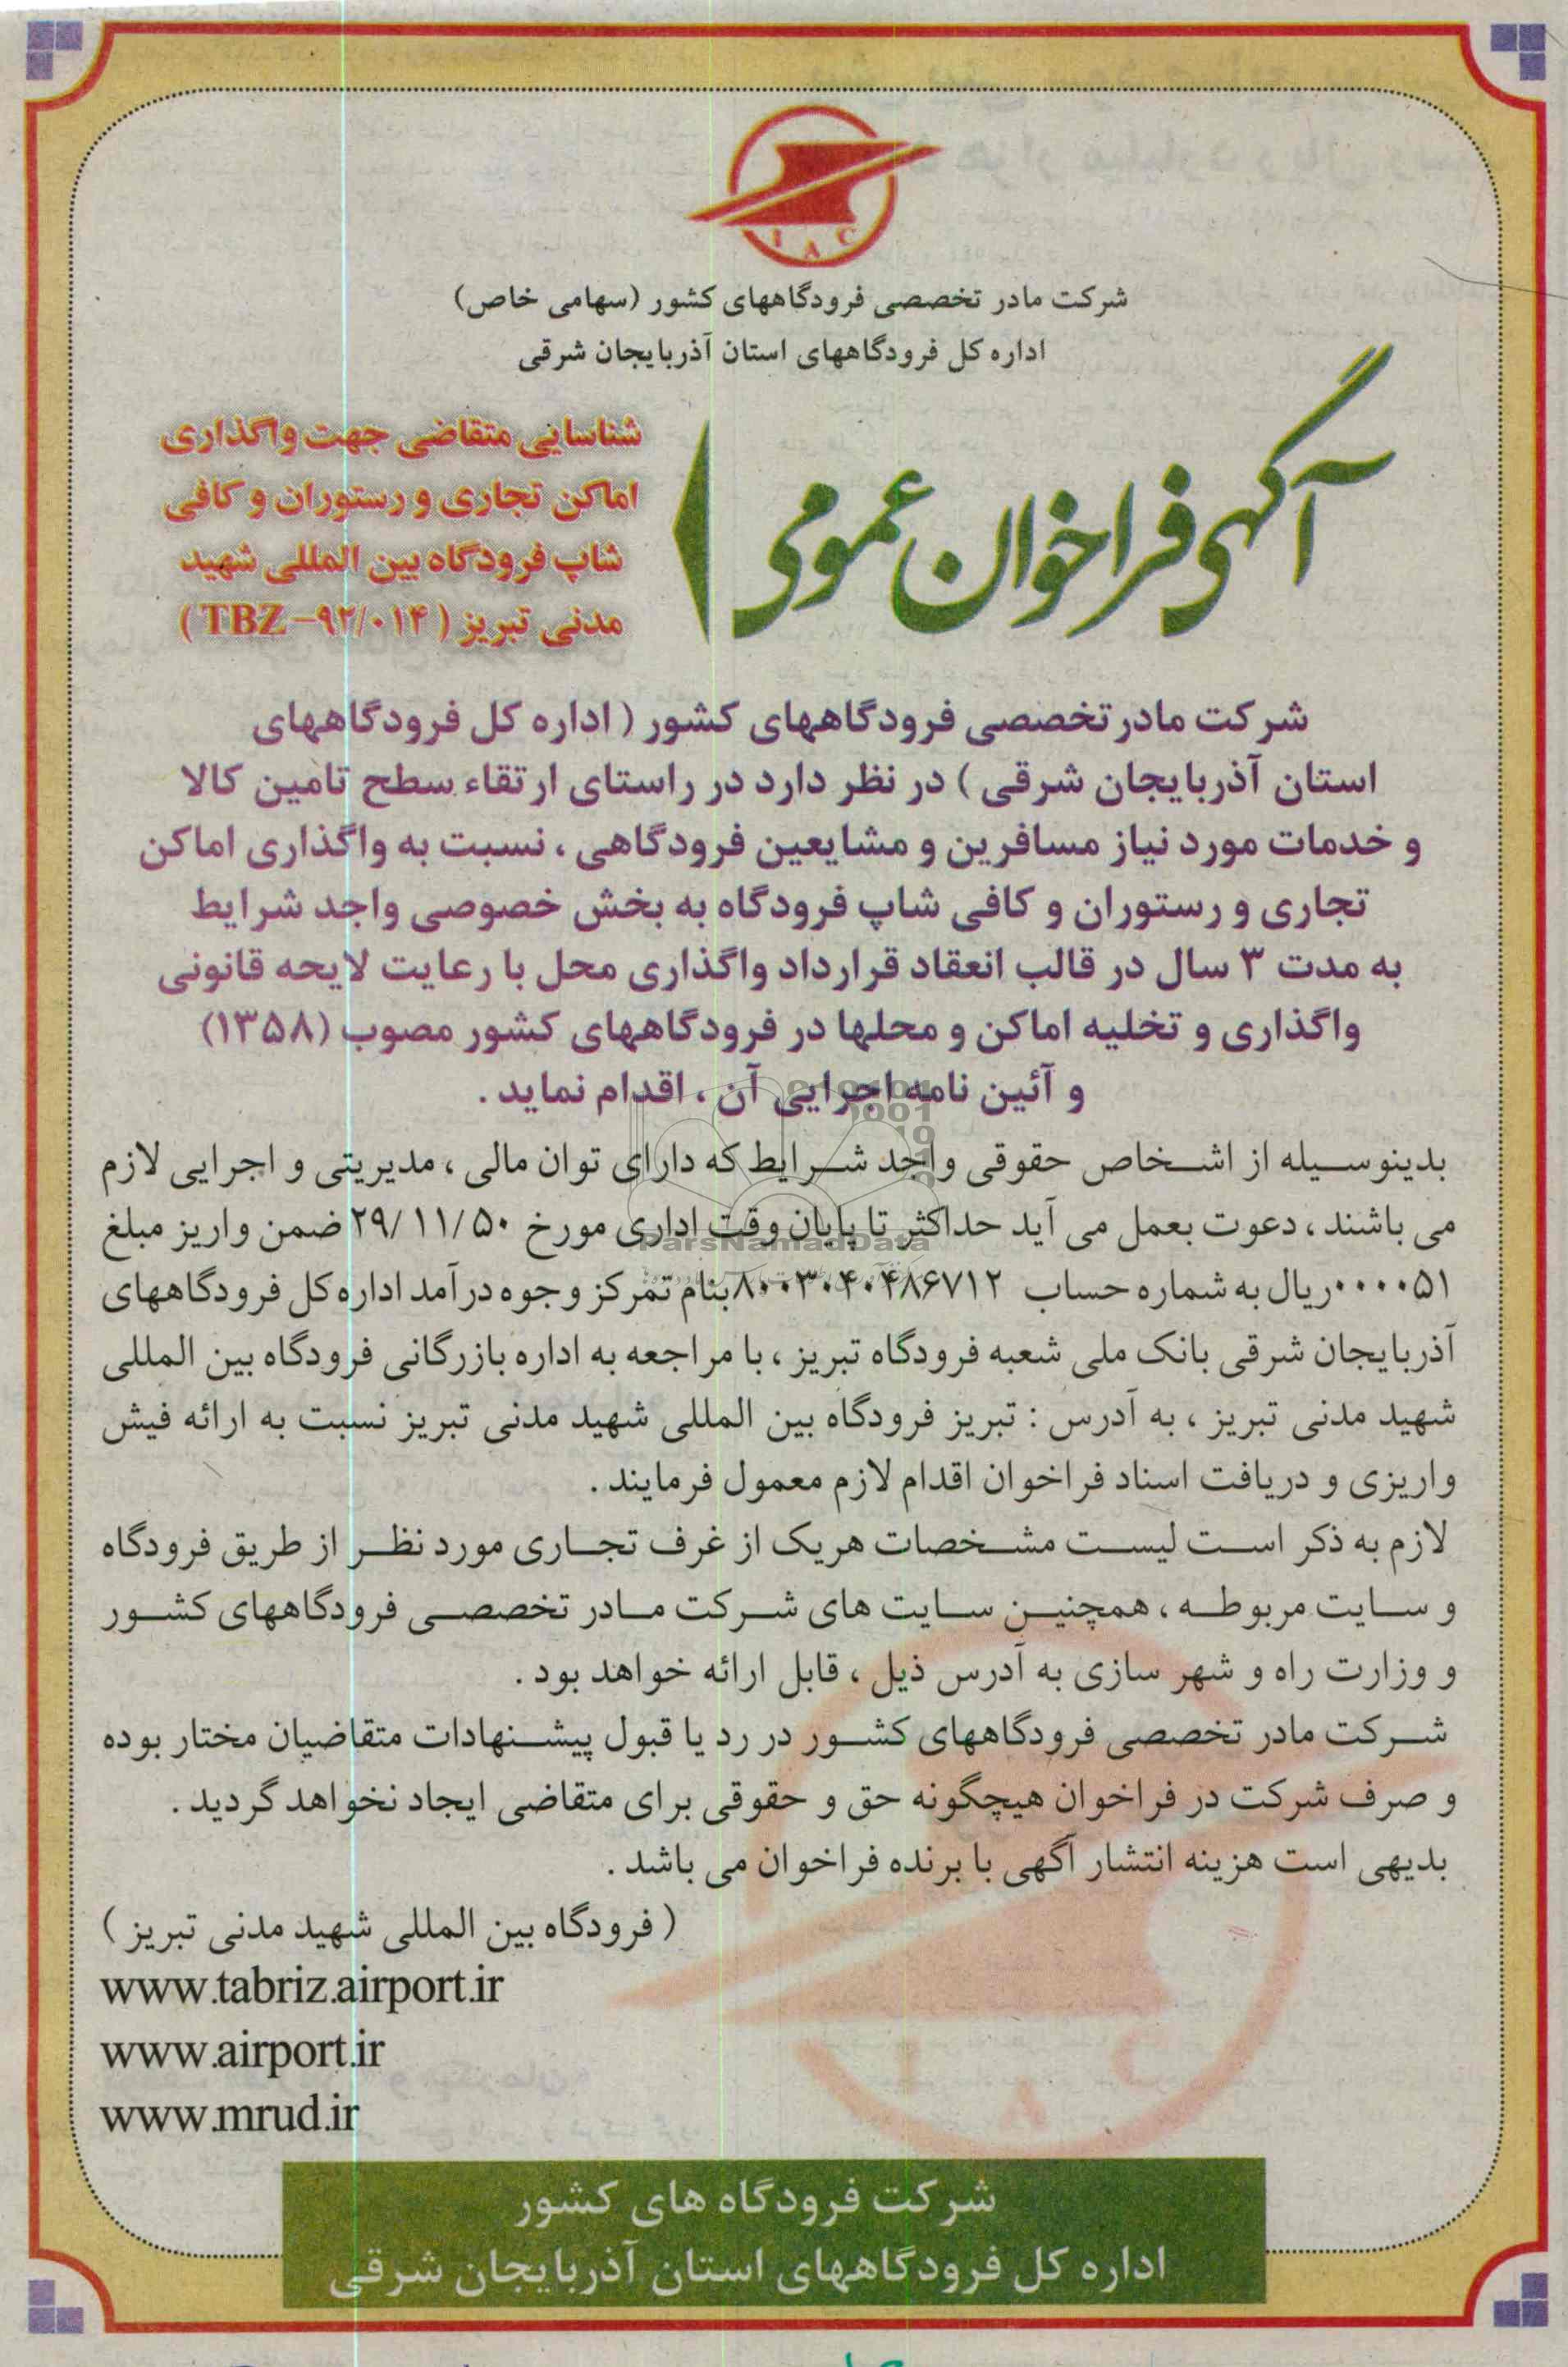 IAC
شرکت مادر تخصصی فرودگاههای کشور (سهامی خاص)
اداره کل فرودگاههای استان آذربایجان شرقی
آگهی فراخوان عمومی
شناسایی متقاضی جهت واگذاری
اماکن تجاری و رستوران و کافی
شاپ فرودگاه بین المللی شهید
مدنی تبریز ( TBZ –۹۲/۰۱۴ )
شرکت مادرتخصصی فرودگاههای کشور ( اداره کل فرودگاههای
استان آذربایجان شرقی ) در نظر دارد در راستای ارتقاء سطح تامین کالا
و خدمات مورد نیاز مسافرین و مشایعین فرودگاهی ، نسبت به واگذاری اماکن
تجاری و رستوران و کافی شاپ فرودگاه به بخش خصوصی واجد شرایط
به مدت ۳ سال در قالب انعقاد قرارداد واگذاری محل با رعایت لایحه قانونی
واگذاری و تخلیه اماکن و محلها در فرودگاههای کشور مصوب (۱۳۵۸)
و آئین نامه اجرایی آن ، اقدام نماید .
بدینوسیله از اشخاص حقوقی واجد شرایط که دارای توان مالی ، مدیریتی و اجرایی لازم
می باشند ، دعوت بعمل می آید حداکثر تا پایان وقت اداری مورخ ۲۹/۱۱/۵۰ ضمن واریز مبلغ
۰۰۰۰۰۵۱ریال به شماره حساب ۸۰۰۳۰۴۰۴۸۶۷۱۲بنام تمرکز وجوه درآمد اداره کل فرودگاههای
آذربایجان شرقی بانک ملی شعبه فرودگاه تبریز ، با مراجعه به اداره بازرگانی فرودگاه بین المللی
شهید مدنی تبریز ، به آدرس : تبریز فرودگاه بین المللی شهید مدنی تبریز نسبت به ارائه فیش
واریزی و دریافت اسناد فراخوان اقدام لازم معمول فرمایند .
لازم به ذکر است لیست مشخصات هریک از غرف تجاری مورد نظر از طریق فرودگاه
و سایت مربوطه ، همچنین سایت های شرکت مادر تخصصی فرودگاههای کشور
و وزارت راه و شهر سازی به آدرس ذیل ، قابل ارائه خواهد بود .
شرکت مادر تخصصی فرودگاههای کشور در رد یا قبول پیشنهادات متقاضیان مختار بوده
و صرف شرکت در فراخوان هیچگونه حق و حقوقی برای متقاضی ایجاد نخواهد گردید .
بدیهی است هزینه انتشار آگهی با برنده فراخوان می باشد .
( فرودگاه بین المللی شهید مدنی تبریز )
www.tabriz.airport.ir
www.airport.ir
www.mrud.ir
شرکت فرودگاه های کشور
اداره کل فرودگاههای استان آذربایجان شرقی
ParsNamadData